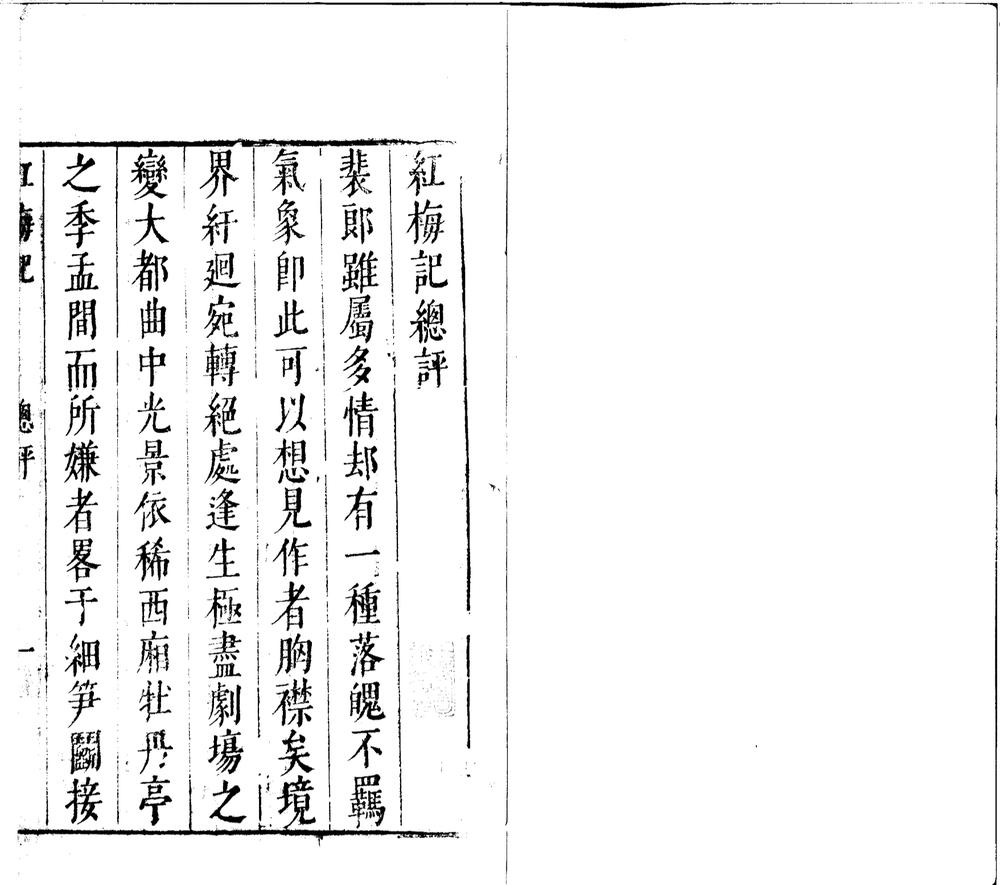 紅梅記總評
裴郎雖屬多情却有一種落魄不羈
氣象卽此可以想見作者胸襟矣境
界紆廻宛轉絕處逢生極盡劇塲之
變大都曲中光景依稀西廂牡丹亭
之季孟間而所嫌者畧于細笋鬬接
紅梅記 總評 一